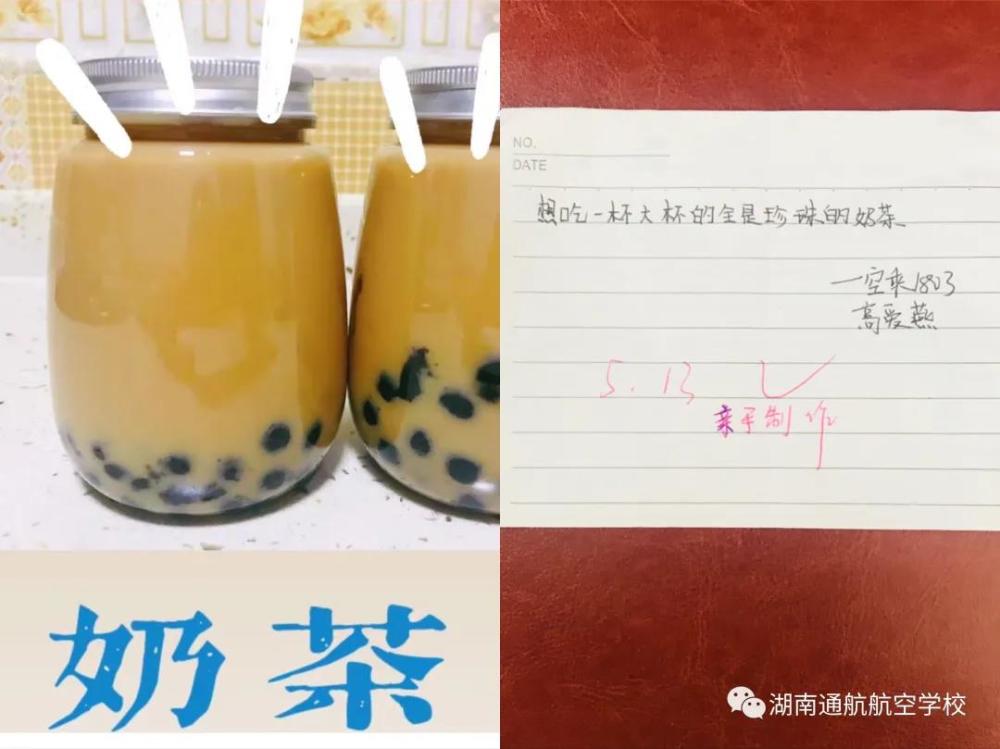 奶茶
NO.
DATE
想吃一杯大杯的全是珍珠的奶茶
一空乘1803
高爱燕
5.13
亲手制作
湖南通航航空学校